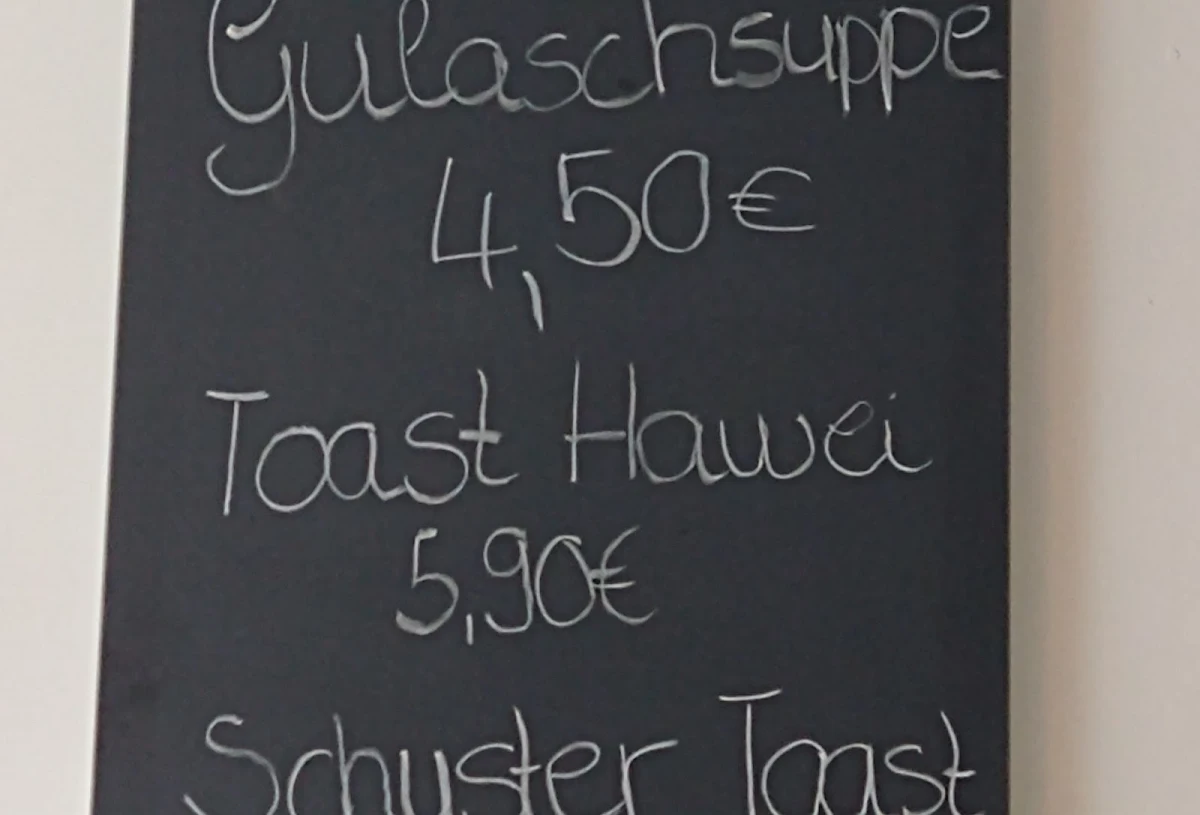 Gulaschsuppe
4,50€
Toast Hawei
5,90€
Schuster Toast